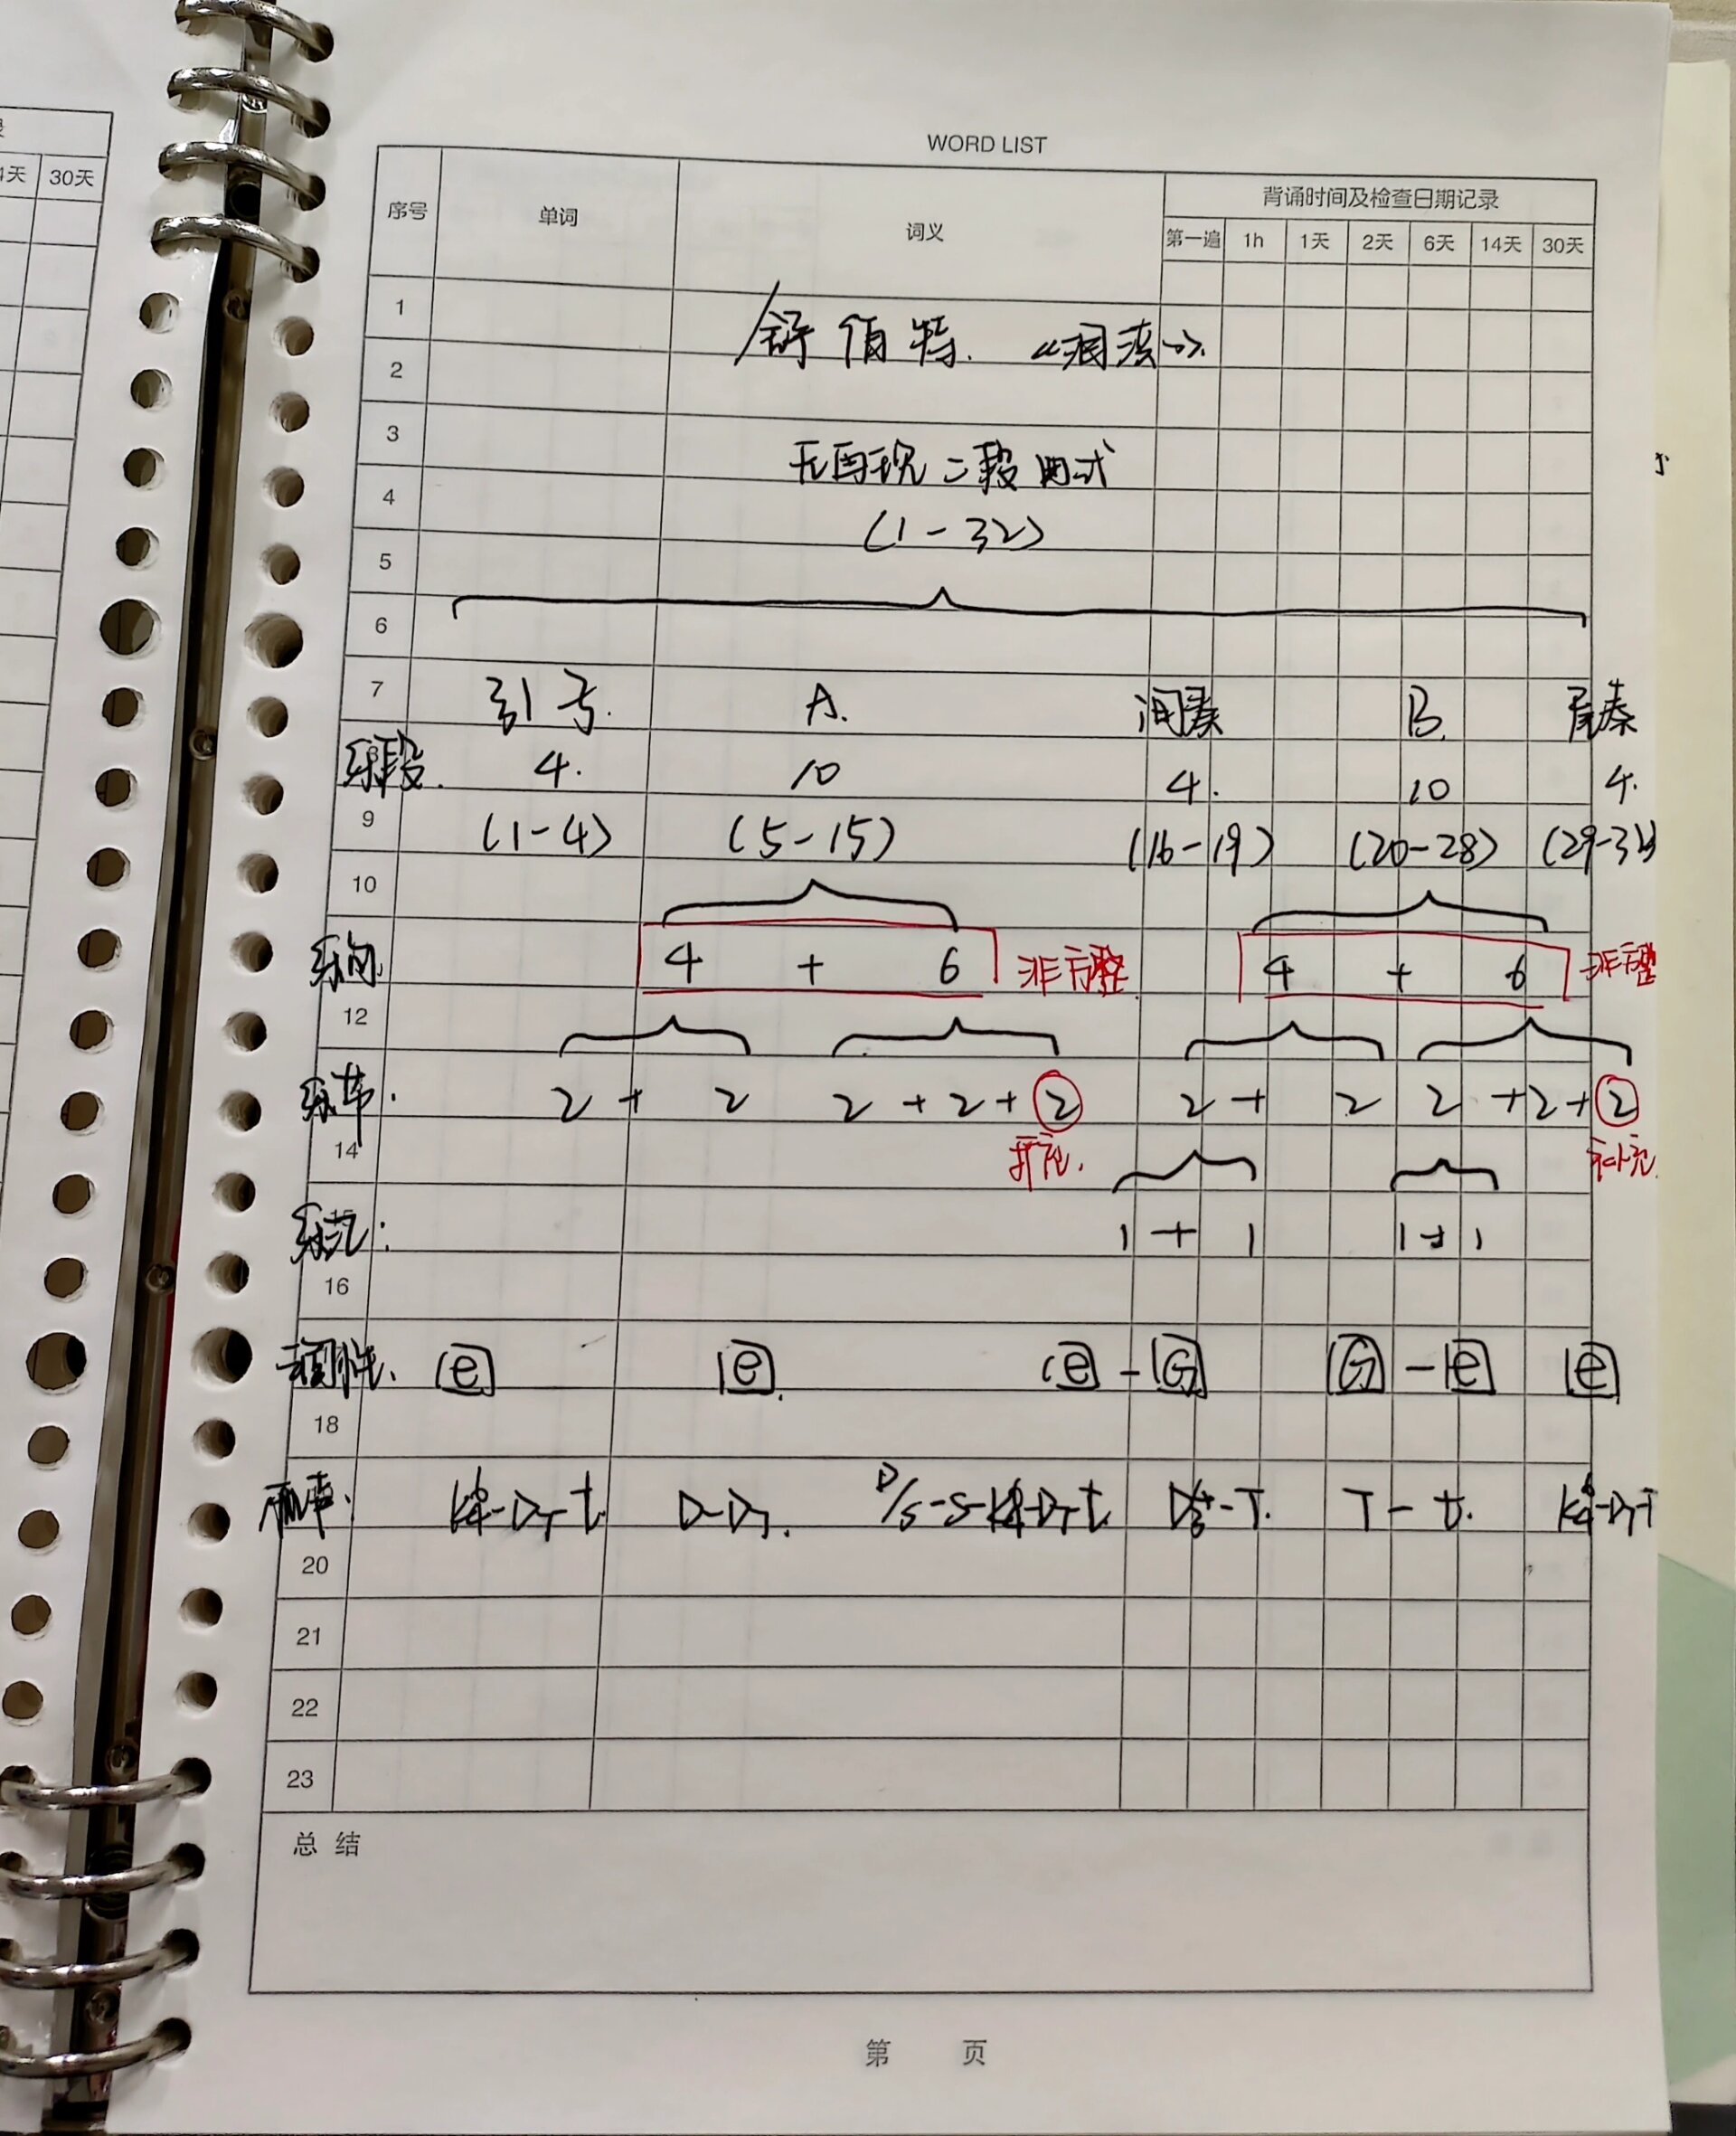 WORD LIST
4天 30天
序号 单词 词义 背诵时间及检查日期记录
第一遍 1h 1天 2天 6天 14天 30天
1
舒伯特. 《洞湊》.
2
3
无再现二段曲式
4
(1-32)
5
6
7 引子. A. 间奏 B. 尾奏
乐段. 4. 10 4. 10 4.
9 (1-4) (5-15) (16-19) (20-28) (29-32)
10
乐句. 4 + 6 非方整 4 + 6 非方整
12
乐节. 2 + 2 2 + 2 + 2 2 + 2 2 + 2 + 2
14 扩充. 补充.
乐汇: 1 + 1 1 + 1
16
调性. e e. e - G G - e e
18
和声. K64-D7-t. D-D7. D/s-s-K64-D7-t. -T. T - t. K64-D7-T
20
21
22
23
总结
第 页